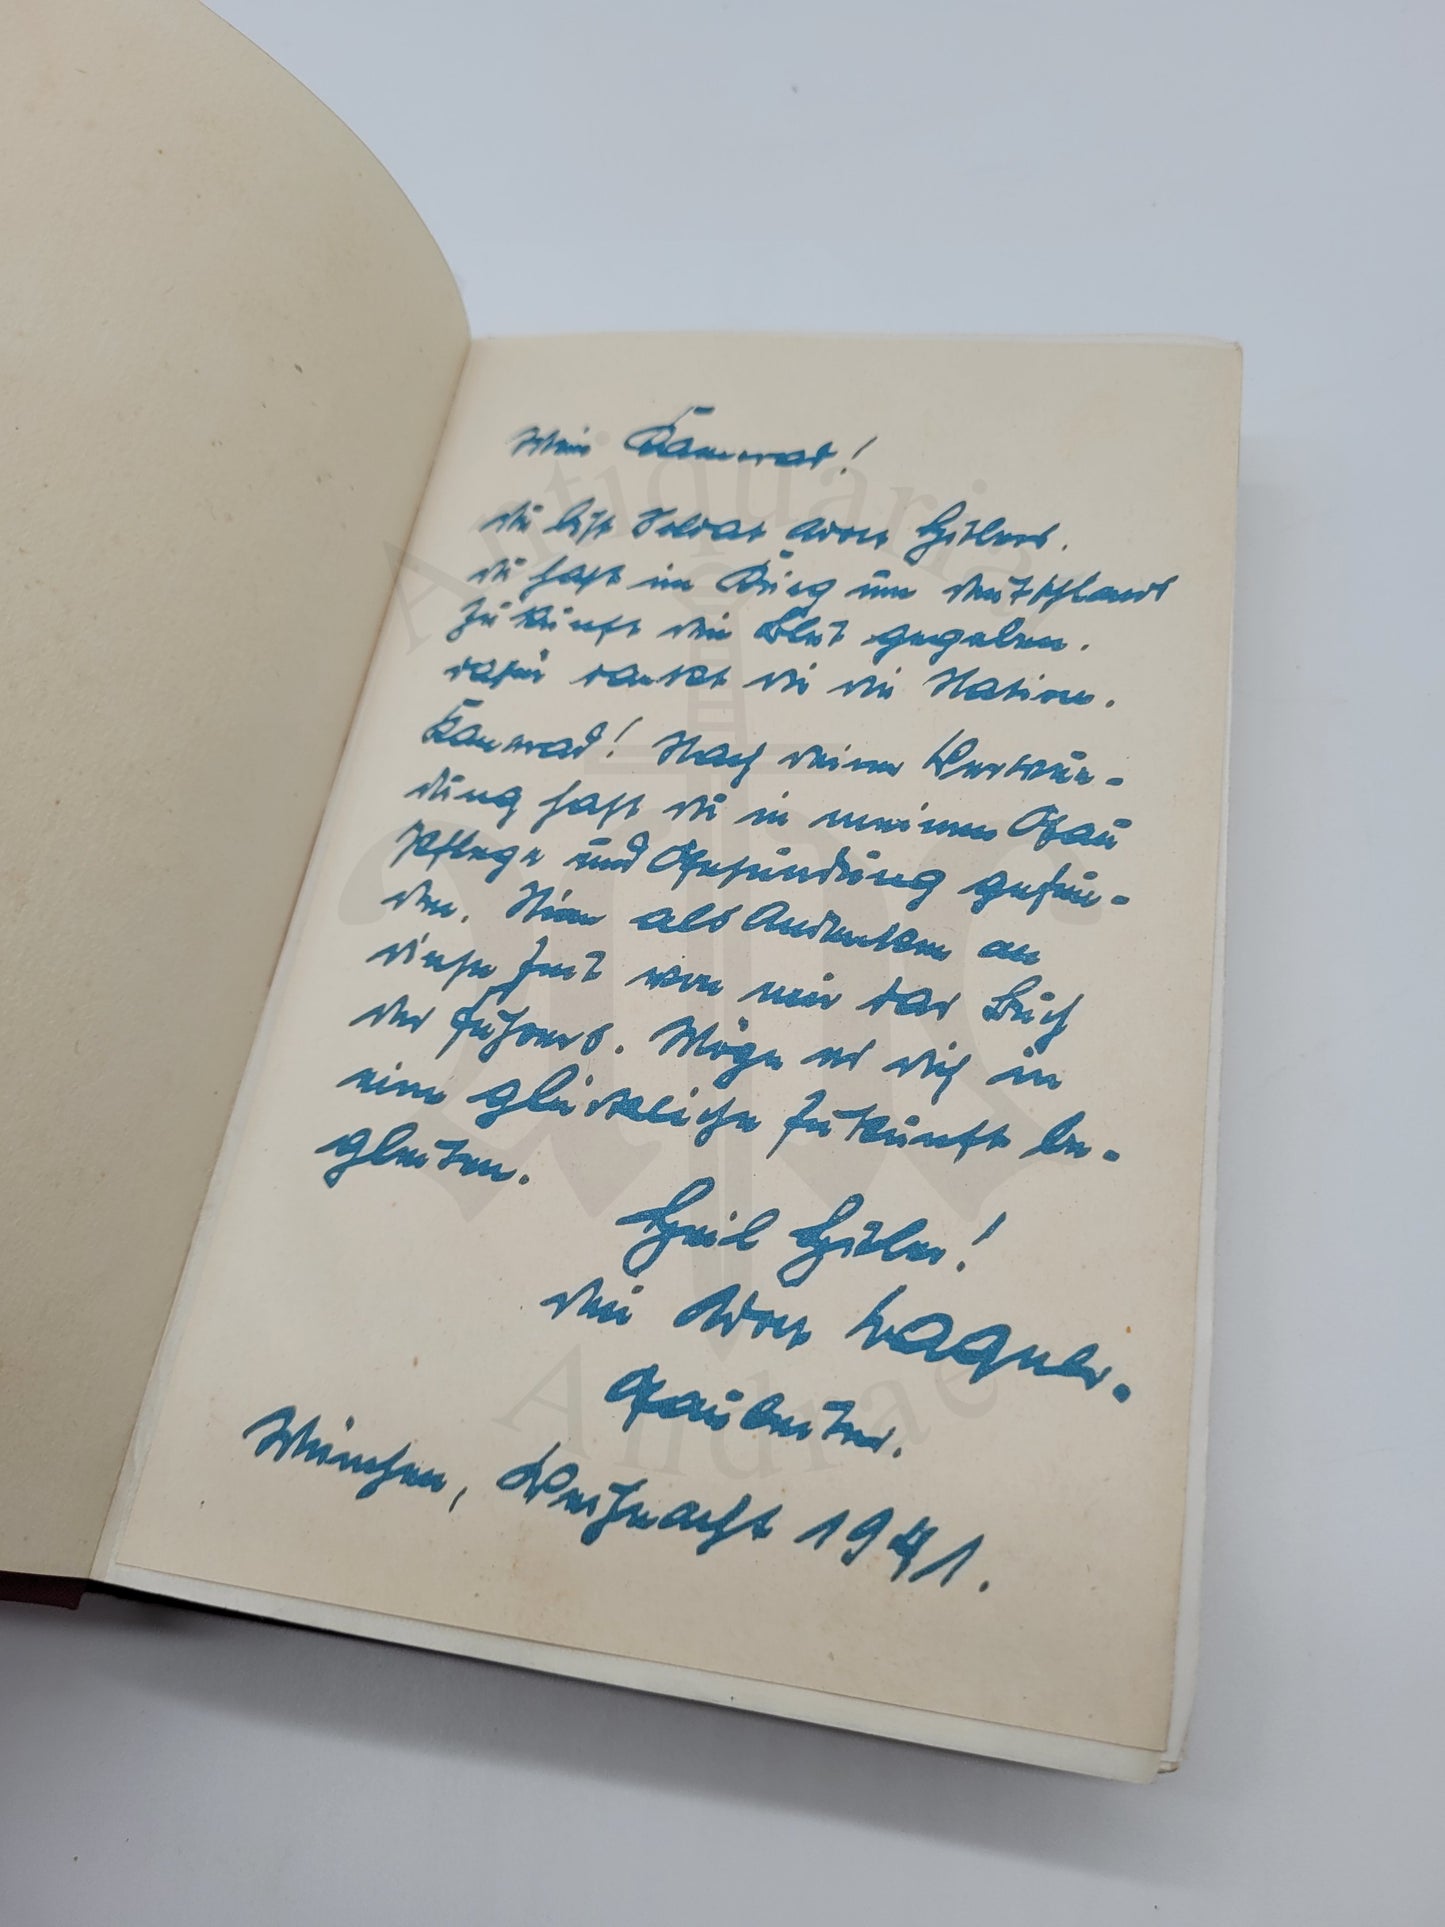 Mein Kamerad!
Du bist Soldat Adolf Hitlers.
Du hast im Krieg um Deutschlands
Zukunft Dein Blut gegeben.
Dafür dankt Dir die Nation.
Kamerad! Nach Deiner Verwun-
dung hast Du in meinem Gau
Pflege und Gesundung gefun-
den. Nimm als Andenken an
diese Zeit von mir das Buch
des Führers. Möge es Dich in
eine glückliche Zukunft be-
gleiten.
Heil Hitler!
Dein Adolf Wagner.
Gauleiter.
München, Weihnacht 1941.
Antiquariat
Andrae